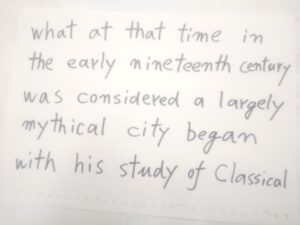 what at that time in
the early nineteenth century
was considered a largely
mythical city began
with his study of Classical